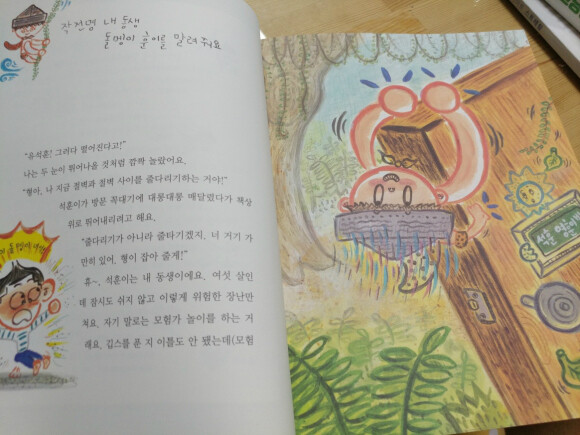 작전명 내 동생
돌멩이 훈이를 말려 줘요
"유석훈! 그러다 떨어진다고!"
나는 두 눈이 튀어나올 것처럼 깜짝 놀랐어요.
"형아, 나 지금 절벽과 절벽 사이를 줄다리기하는 거야!"
석훈이가 방문 꼭대기에 대롱대롱 매달렸다가 책상
위로 뛰어내리려고 해요.
"줄다리기가 아니라 줄타기겠지. 너 거기 가
만히 있어. 형이 잡아 줄게!"
휴~, 석훈이는 내 동생이에요. 여섯 살인
데 잠시도 쉬지 않고 이렇게 위험한 장난만
쳐요. 자기 말로는 모험가 놀이를 하는 거
래요. 깁스를 푼 지 이틀도 안 됐는데(모험